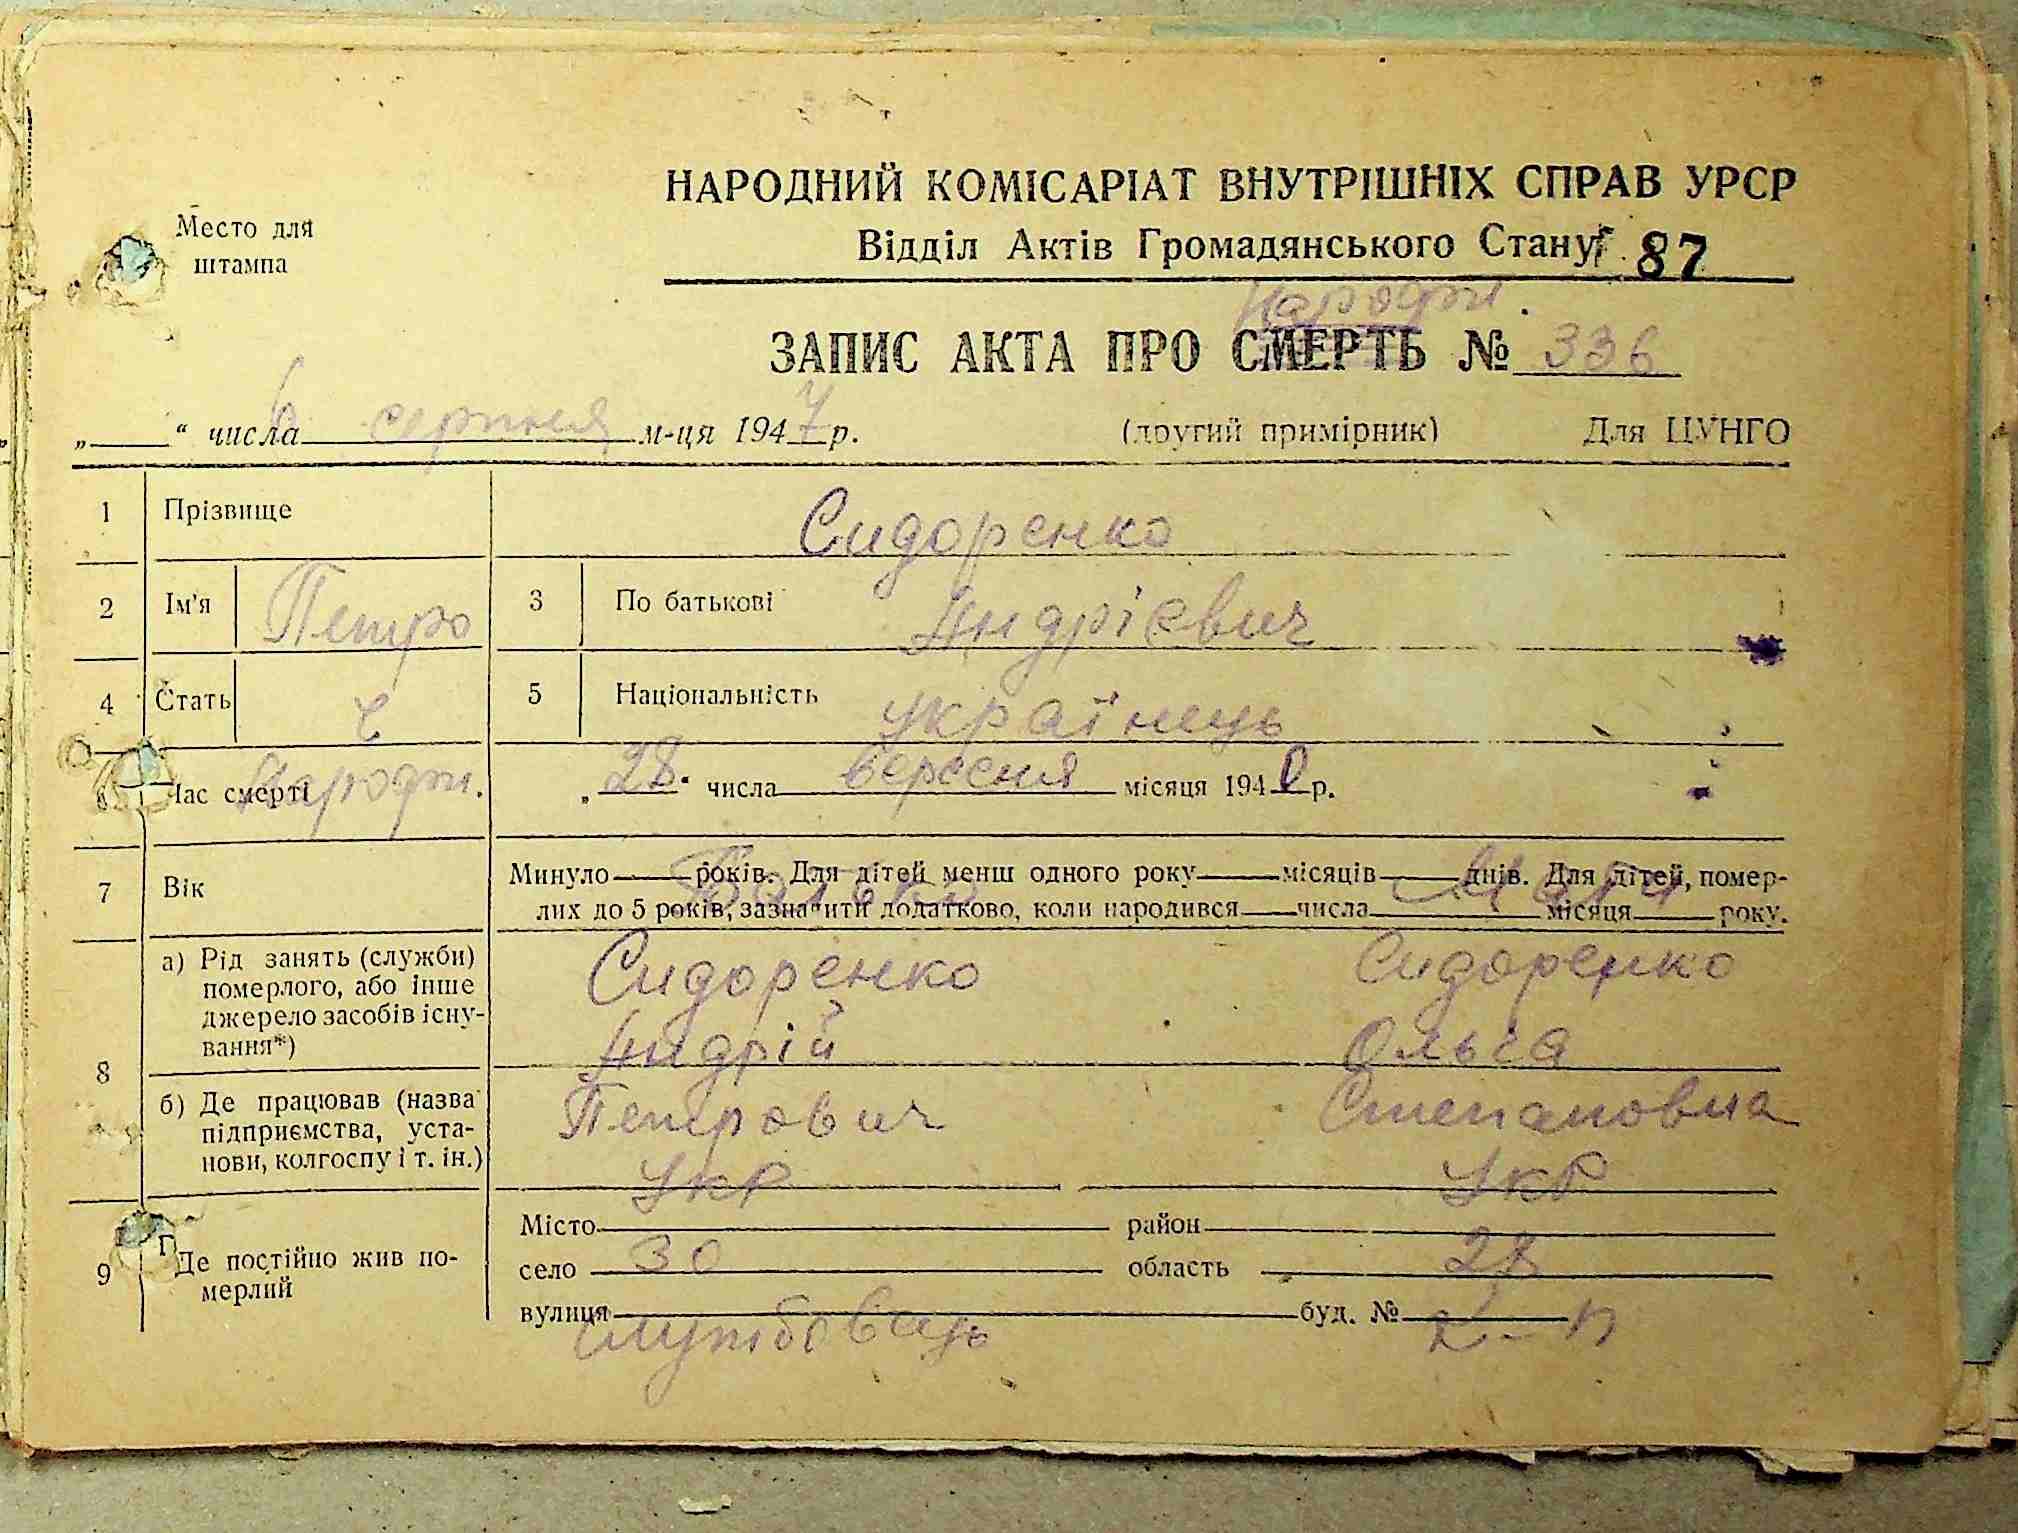 НАРОДНИЙ КОМІСАРІАТ ВНУТРІШНІХ СПРАВ УРСР
Место для штампа
Відділ Актів Громадянського Стану 87
Народж.
ЗАПИС АКТА ПРО СМЕРТЬ № 336
„ “ числа 6 серпня м-ця 1947 р. (другий примірник) Для ЦУНГО
1 Прізвище Сидоренко
2 Ім'я Петро 3 По батькові Андрієвич
4 Стать ч 5 Національність українець
6 Час смерті Народж. „28“ числа вересня місяця 1940 р.
7 Вік Минуло років. Для дітей менш одного року місяців днів. Для дітей, помер-
лих до 5 років, зазначити додатково, коли народився числа місяця року.
Батько Мати
8 а) Рід занять (служби) померлого, або інше джерело засобів існу-вання*)
Сидоренко Сидоренко
Андрій Ольга
б) Де працював (назва підприємства, уста-нови, колгоспу і т. ін.)
Петрович Степановна
Укр Укр
9 Де постійно жив по-мерлий
Місто район
село 30 область 28
вулиця буд. №
службовець